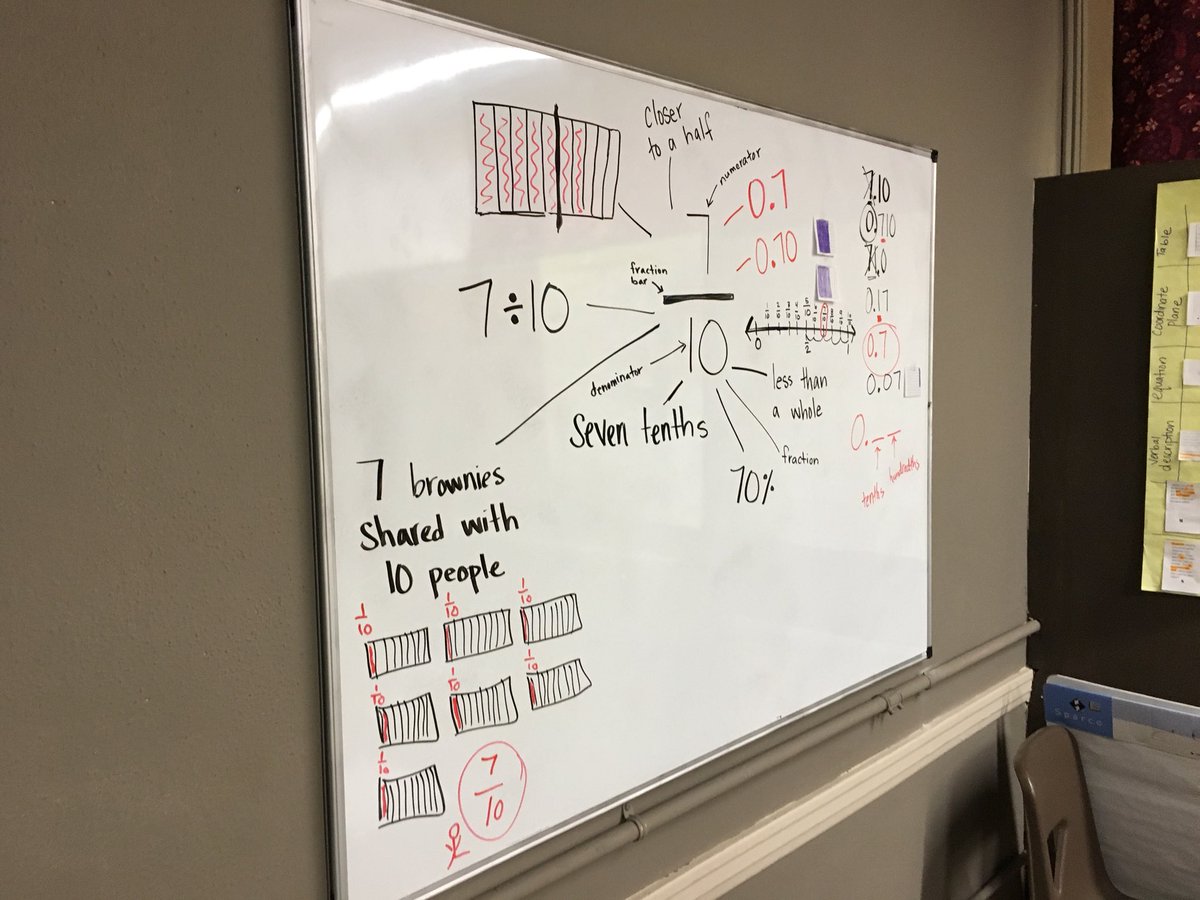 closer
to a half
numerator
0.7
0.70
7
fraction
bar
10
denominator
7÷10
Seven tenths
less than
a whole
fraction
70%
0
1
2
1
7.10
0.710
7.0
0.17
0.7
0.07
0._ _
tenths
hundredths
7 brownies
Shared with
10 people
1/10
1/10
1/10
1/10
1/10
1/10
1/10
7
10
Table
Coordinate
plane
equation
Verbal
description
Sparco